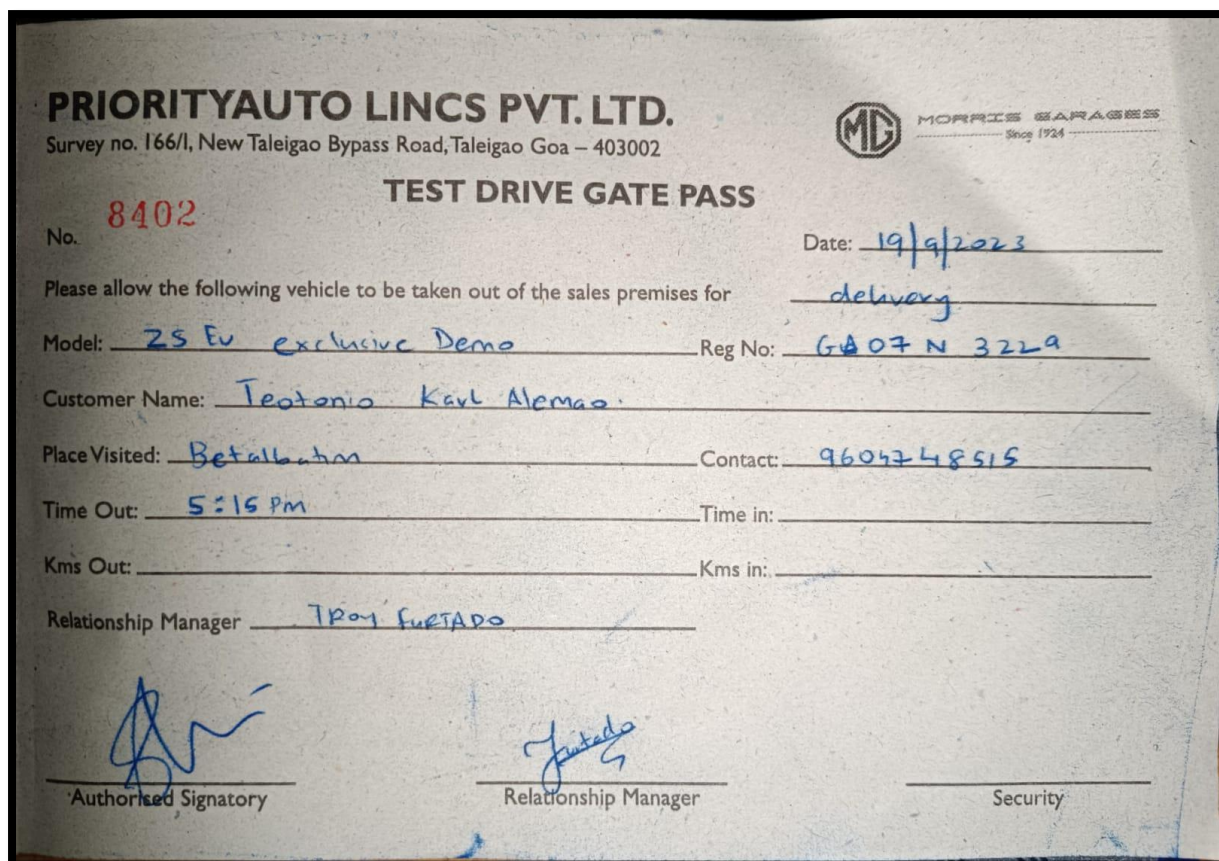 PRIORITYAUTO LINCS PVT. LTD.
Survey no. 166/1, New Taleigao Bypass Road, Taleigao Goa – 403002
MG MORRIS GARAGES
Since 1924
TEST DRIVE GATE PASS
No. 8402
Date: 19/9/2023
Please allow the following vehicle to be taken out of the sales premises for delivery
Model: ZS Ev exclusive Demo Reg No: GA 07 N 3229
Customer Name: Teotonio Karl Alemao.
Place Visited: Betalbatim Contact: 9604748515
Time Out: 5:15 Pm Time in:
Kms Out: Kms in:
Relationship Manager TROY FURTADO
Furtado
Authorised Signatory Relationship Manager Security